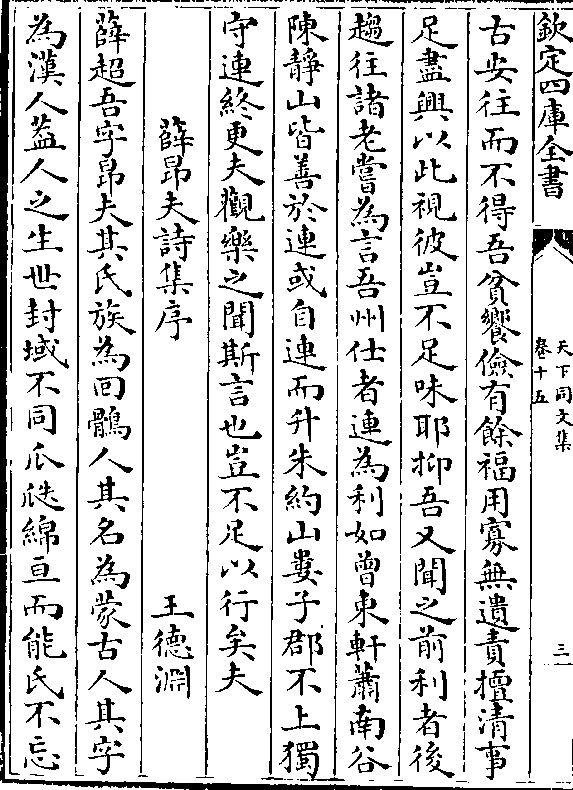 欽定四庫全書
天下同文集
卷十五
三
古安往而不得吾貧饗儉有餘福用寡無遺責擅清事
足盡興以此視彼豈不足味耶抑吾又聞之前利者後
趨往諸老嘗為言吾州仕者連為利如曾東軒蕭南谷
陳靜山皆善於連或自連而升朱約山婁子郡不上獨
守連終更夫觀樂之聞斯言也豈不足以行矣夫
薛昂夫詩集序
王德淵
薛超吾字昂夫其氏族為回鶻人其名為蒙古人其字
為漢人葢人之生世封域不同瓜瓞綿亘而能氏不忘